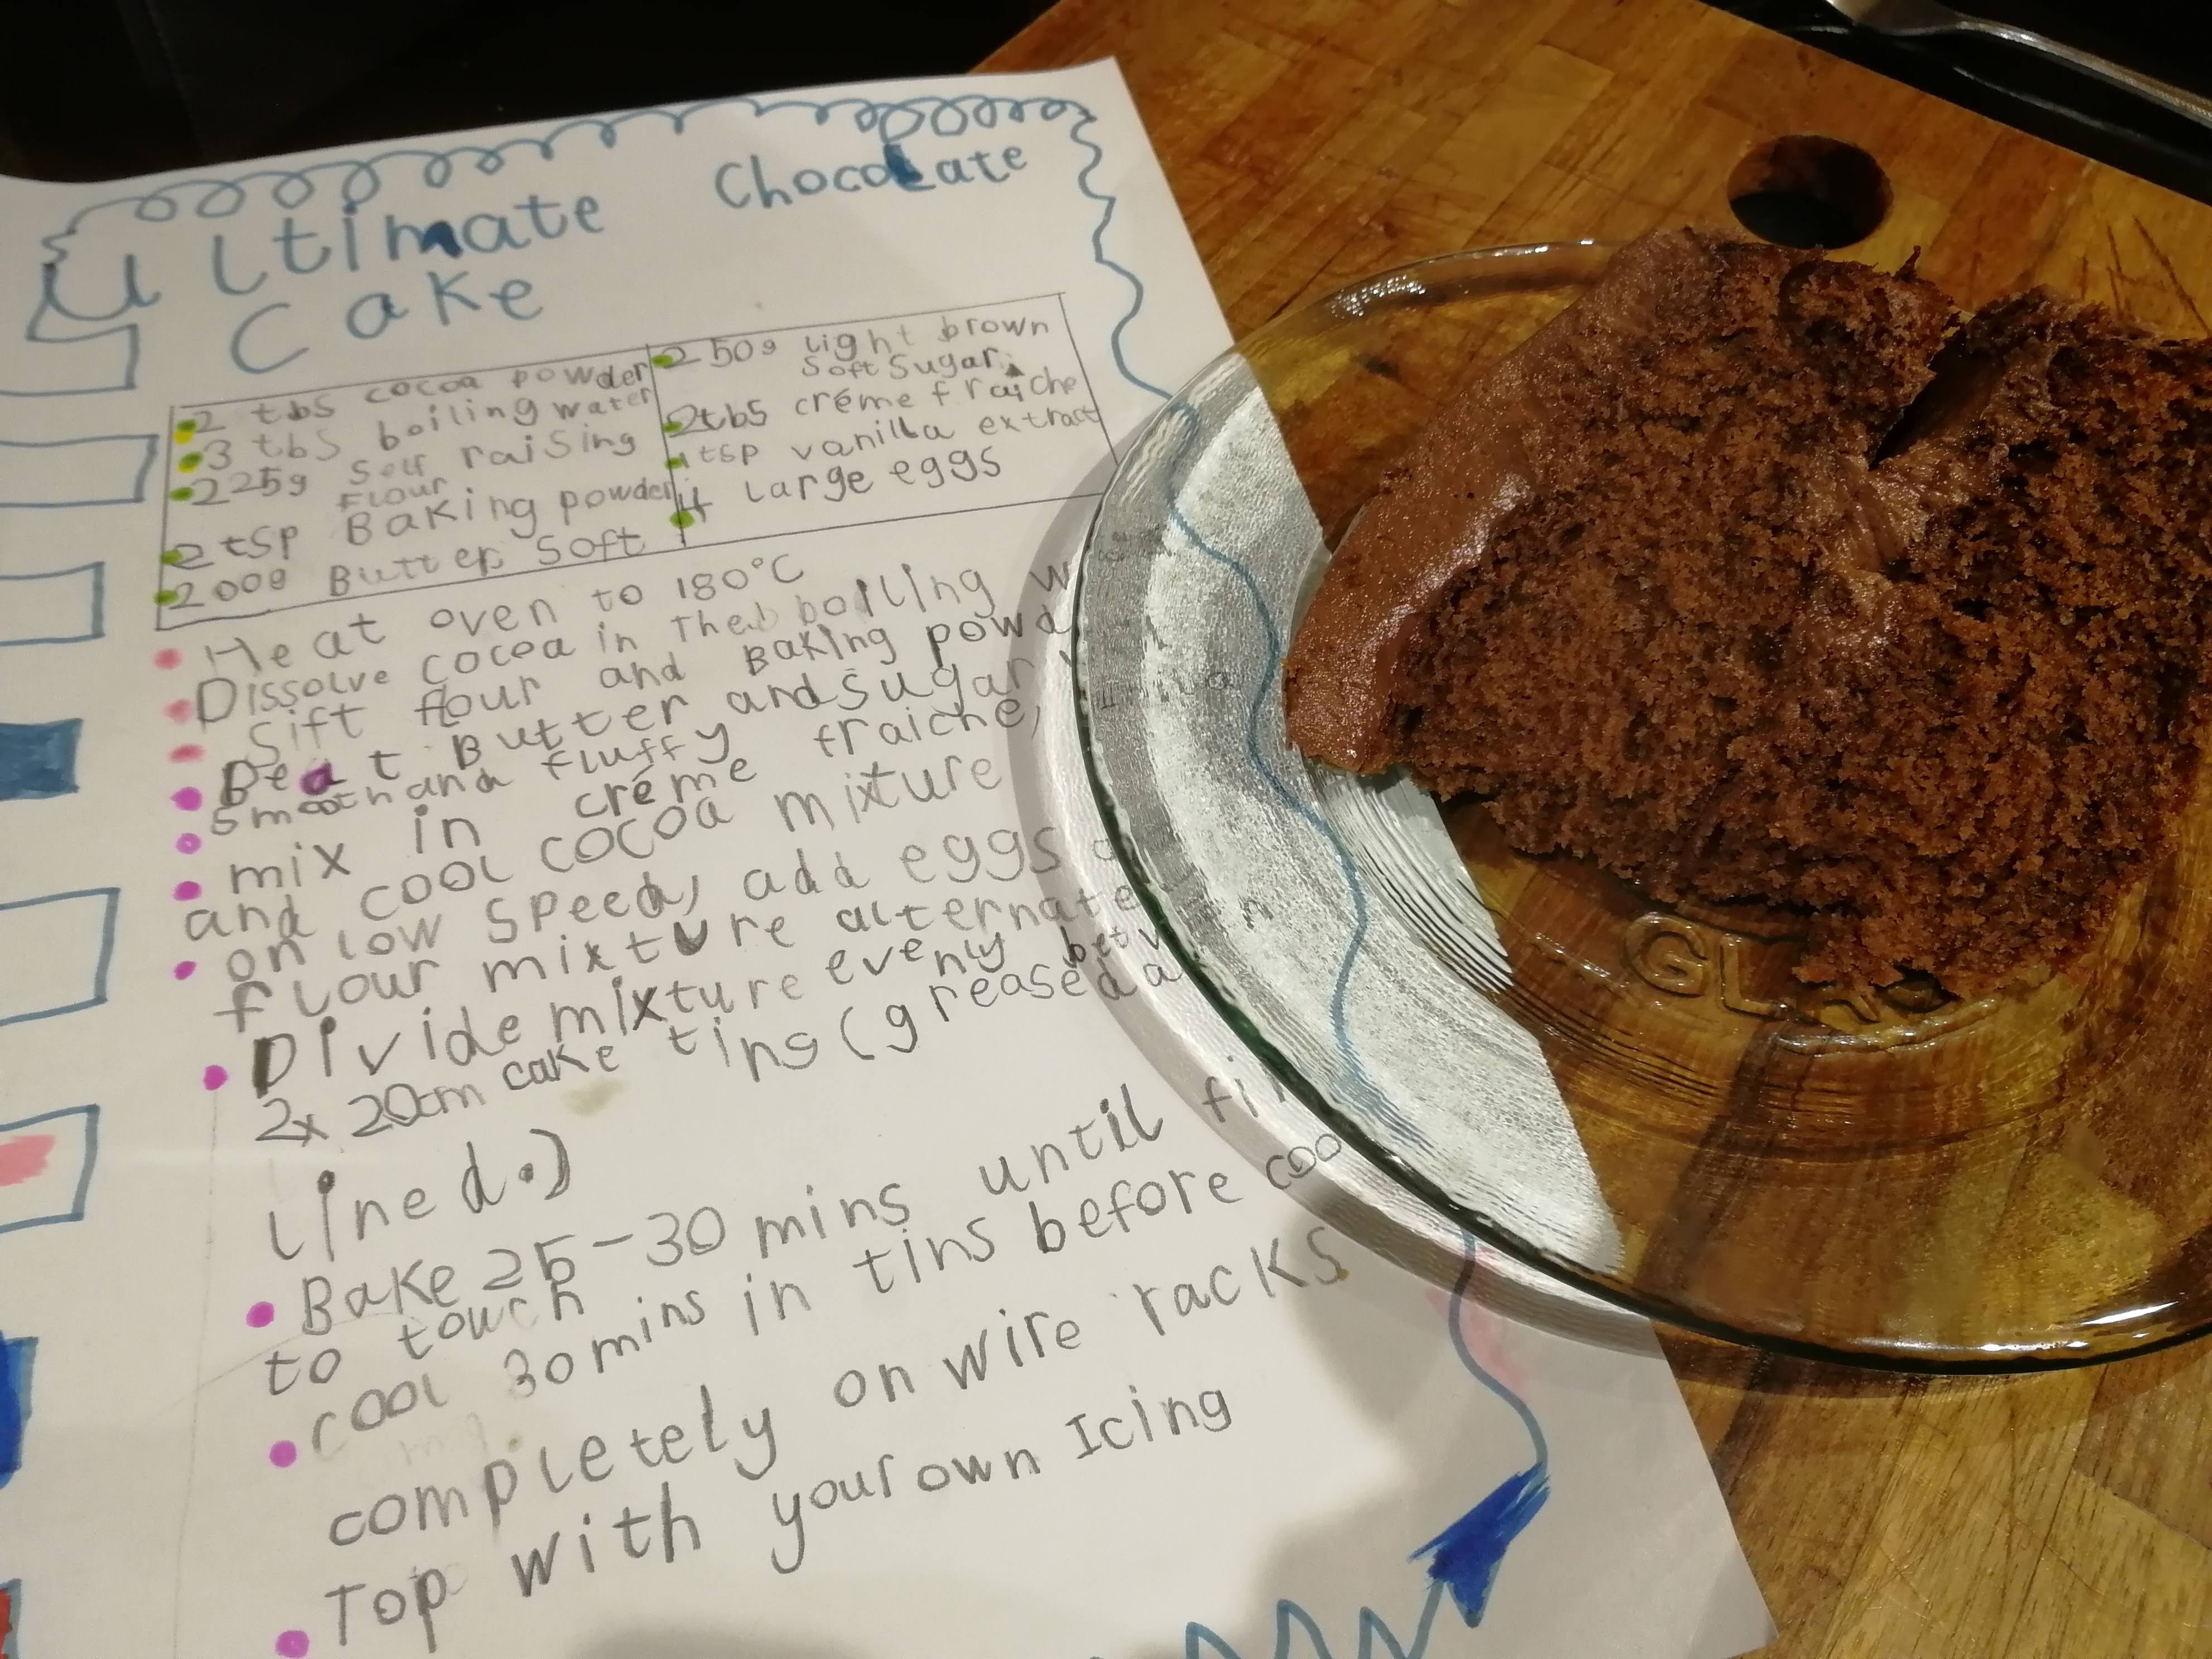 Ultimate Chocolate
Cake
2 tbs cocoa powder
3 tbs boiling water
225g Self raising
Flour
2 tsp Baking powder
200g Butter, Soft
250g light brown
Soft Sugar
2tbs créme fraiche
1 tsp vanilla extract
4 large eggs
Heat oven to 180°C
Dissolve cocoa in The boiling
Sift flour and Baking
Beat Butter and sugar
smooth and fluffy
mix in créme fraiche,
and cool cocoa mixture
on low speed, add eggs
flour mixture alternate
Divide mixture evenly
2x 20cm cake tins (greased
lined.)
Bake 25-30 mins until
to touch
cool 30mins in tins before
completely on wire racks
Top with your own Icing